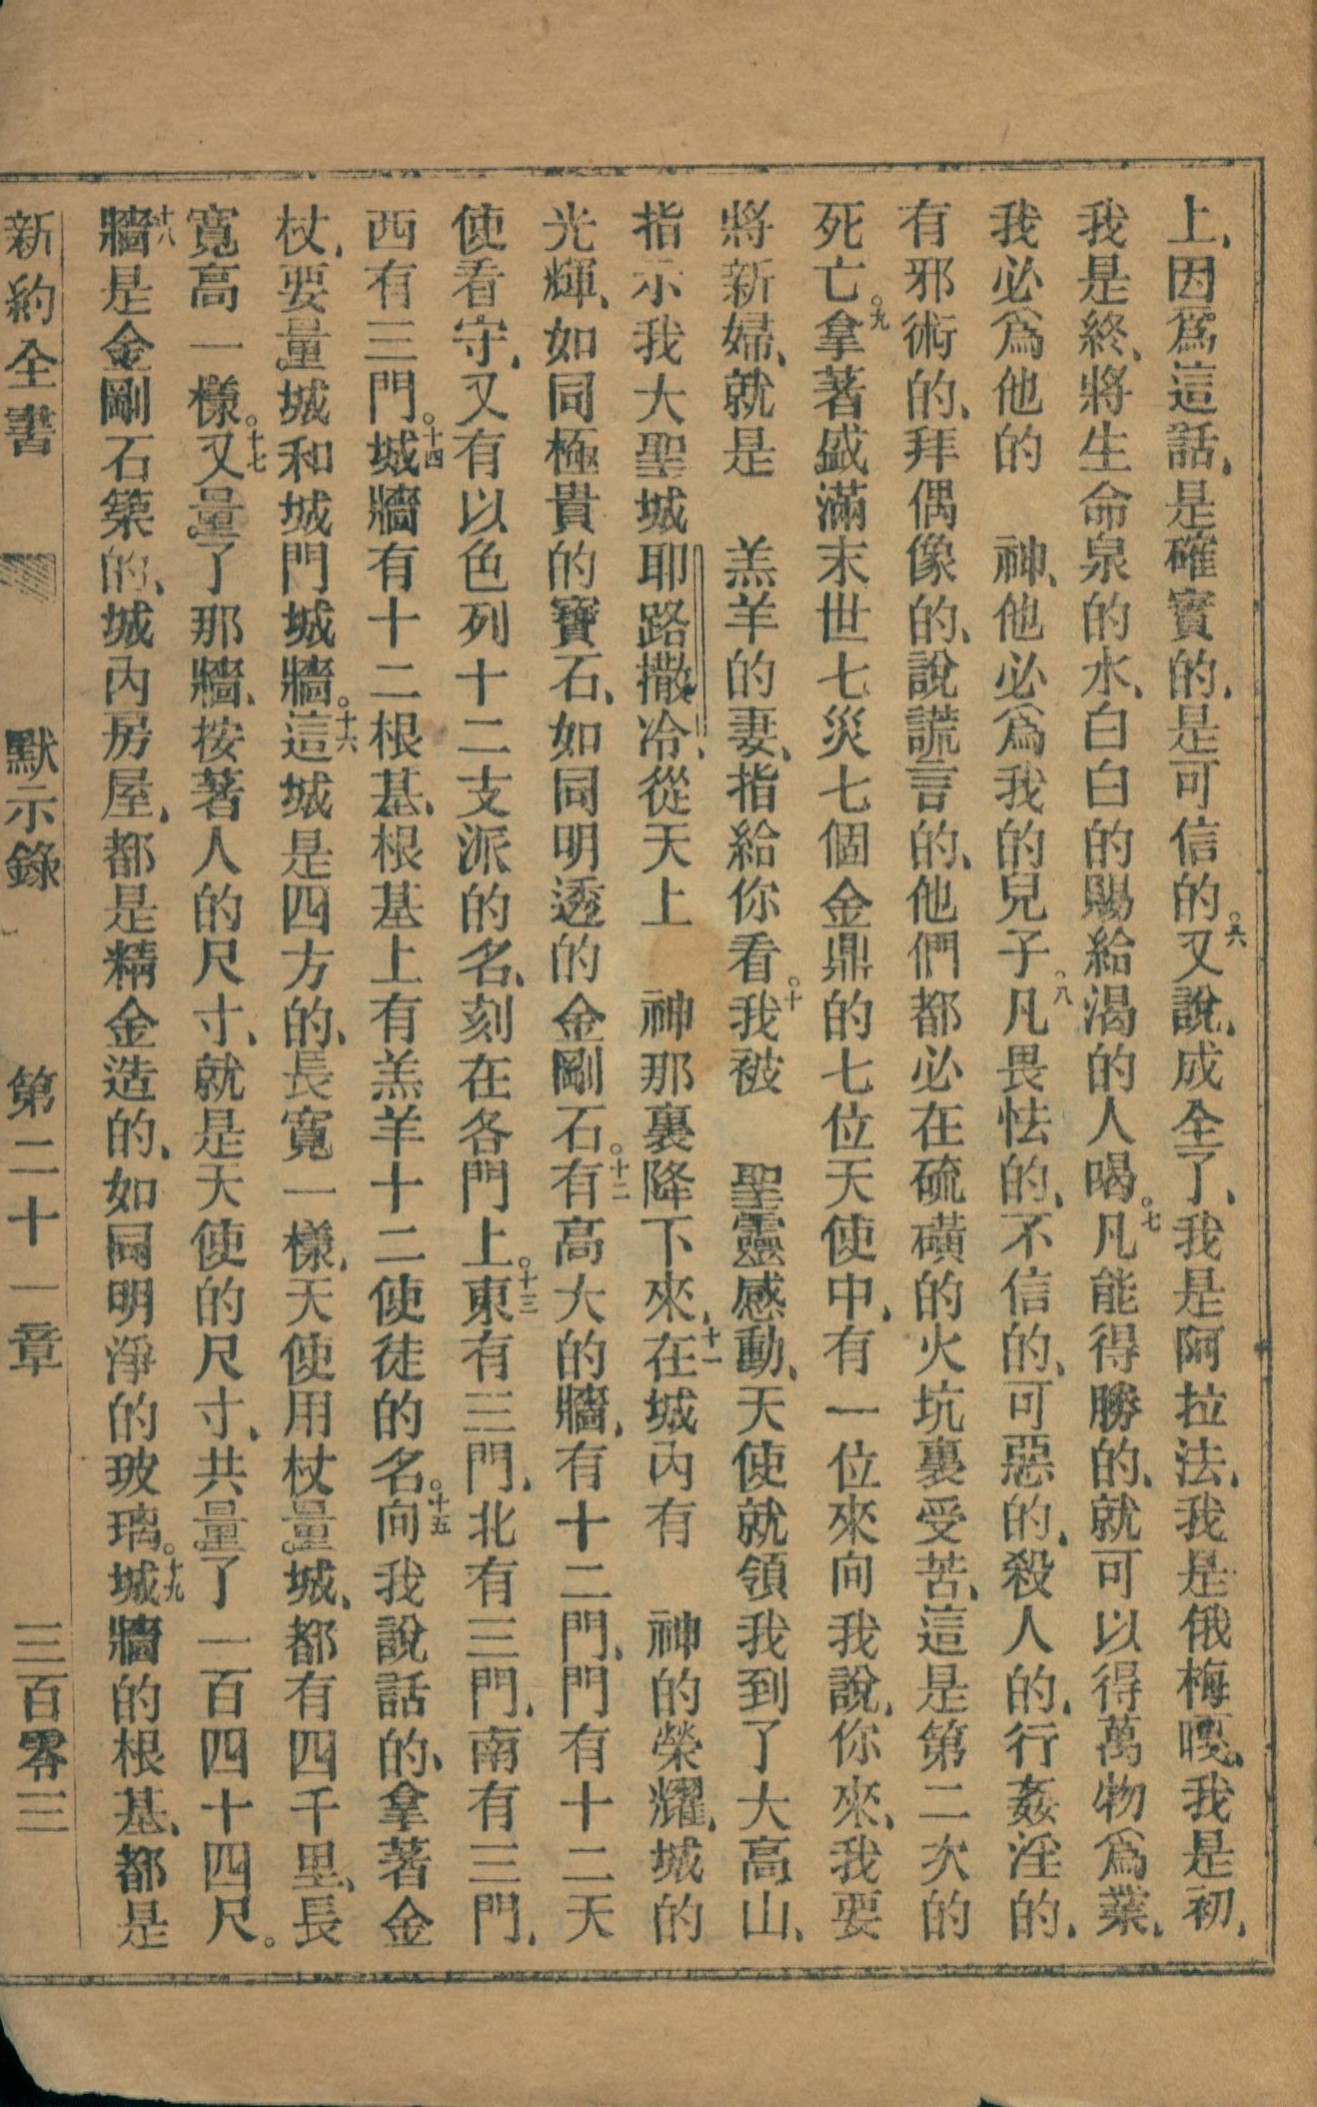 上、因爲這話、是確實的、是可信的。六又說、成全了、我是阿拉法、我是俄梅嘎、我是初、
我是終、將生命泉的水、白白的賜給渴的人喝。七凡能得勝的、就可以得萬物爲業、
我必爲他的 神、他必爲我的兒子。八凡畏怯的、不信的、可惡的、殺人的、行姦淫的、
有邪術的、拜偶像的、說謊言的、他們都必在硫磺的火坑裏受苦、這是第二次的
死亡。九拿著盛滿末世七災七個金鼎的七位天使中、有一位來向我說、你來、我要
將新婦、就是 羔羊的妻、指給你看。十我被 聖靈感動、天使就領我到了大高山、
指示我大聖城耶路撒冷、從天上 神那裏降下來、十一在城內有 神的榮耀、城的
光輝、如同極貴的寶石、如同明透的金剛石。十二有高大的牆、有十二門、門有十二天
使看守、又有以色列十二支派的名、刻在各門上。十三東有三門、北有三門、南有三門、
西有三門。十四城牆有十二根基、根基上有羔羊十二使徒的名。十五向我說話的、拿著金
杖、要量城和城門城牆。十六這城是四方的、長寬一樣、天使用杖量城、都有四千里、長
寬高一樣。十七又量了那牆、按著人的尺寸、就是天使的尺寸、共量了一百四十四尺。
十八牆是金剛石築的、城內房屋、都是精金造的、如同明淨的玻璃。十九城牆的根基、都是
新約全書 默示錄 第二十一章 三百零三